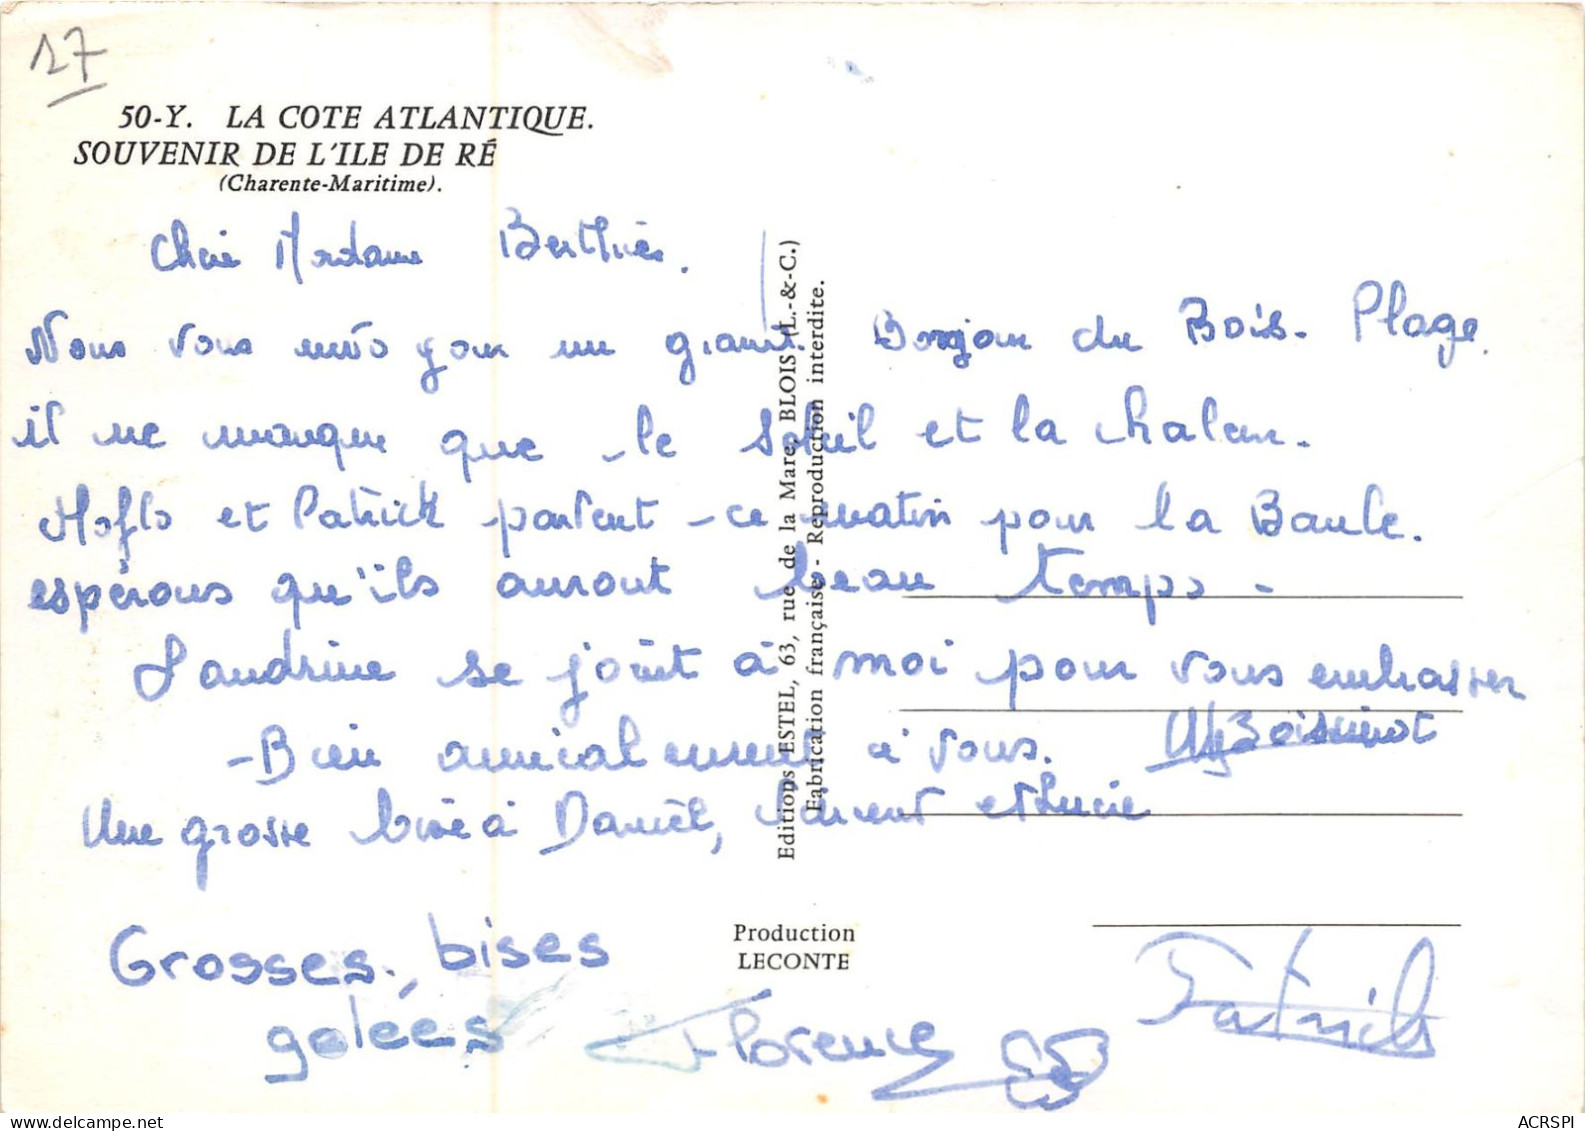 17
50-Y. LA COTE ATLANTIQUE.
SOUVENIR DE L'ILE DE RÉ
(Charente-Maritime).
Chère Madame Berthier.
Nous vous envoyons un grand Bonjour du Bois. Plage.
il ne manque que le soleil et la chaleur.
et Patrick partent ce matin pour la Baule.
espérons qu'ils auront beau temps -
Sandrine se joint à moi pour vous embrasser
- Bien amicalement à vous. Boisminot
Une grosse bise à Daniel, Laurent et Lucie
Grosses. bises
gelées
Florence
Patrick
Editions ESTEL, 63, rue de la Mare, BLOIS (L.-&-C.)
Fabrication française - Reproduction interdite.
Production
LECONTE
ACRSPI